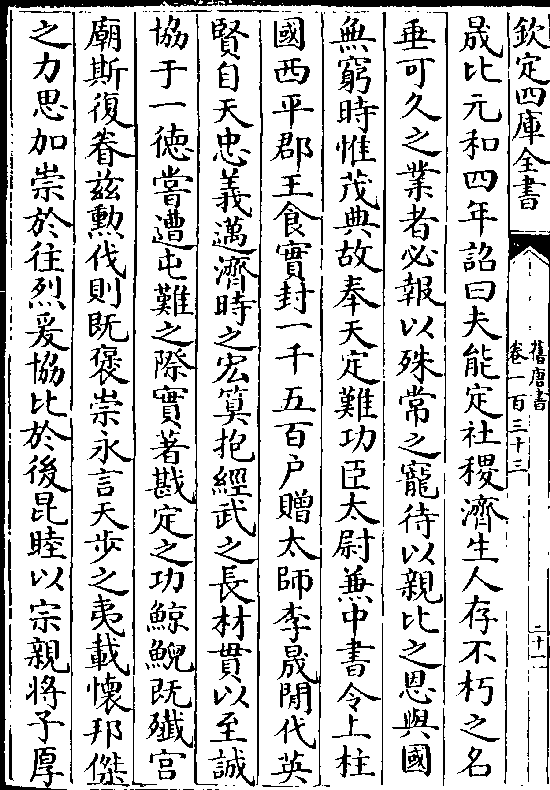 欽定四庫全書
舊唐書
卷一百三十三
二十一
晟比元和四年詔曰夫能定社稷濟生人存不朽之名
垂可久之業者必報以殊常之寵待以親比之恩與國
無窮時惟茂典故奉天定難功臣太尉兼中書令上柱
國西平郡王食實封一千五百户贈太師李晟間代英
賢自天忠義邁濟時之宏筭抱經武之長材貫以至誠
協于一徳嘗遭屯難之際實著戡定之功鯨鯢既殲宫
廟斯復眷兹勲伐則既褒崇永言天步之夷載懷邦傑
之力思加崇於往烈爰協比於後昆睦以宗親將予厚